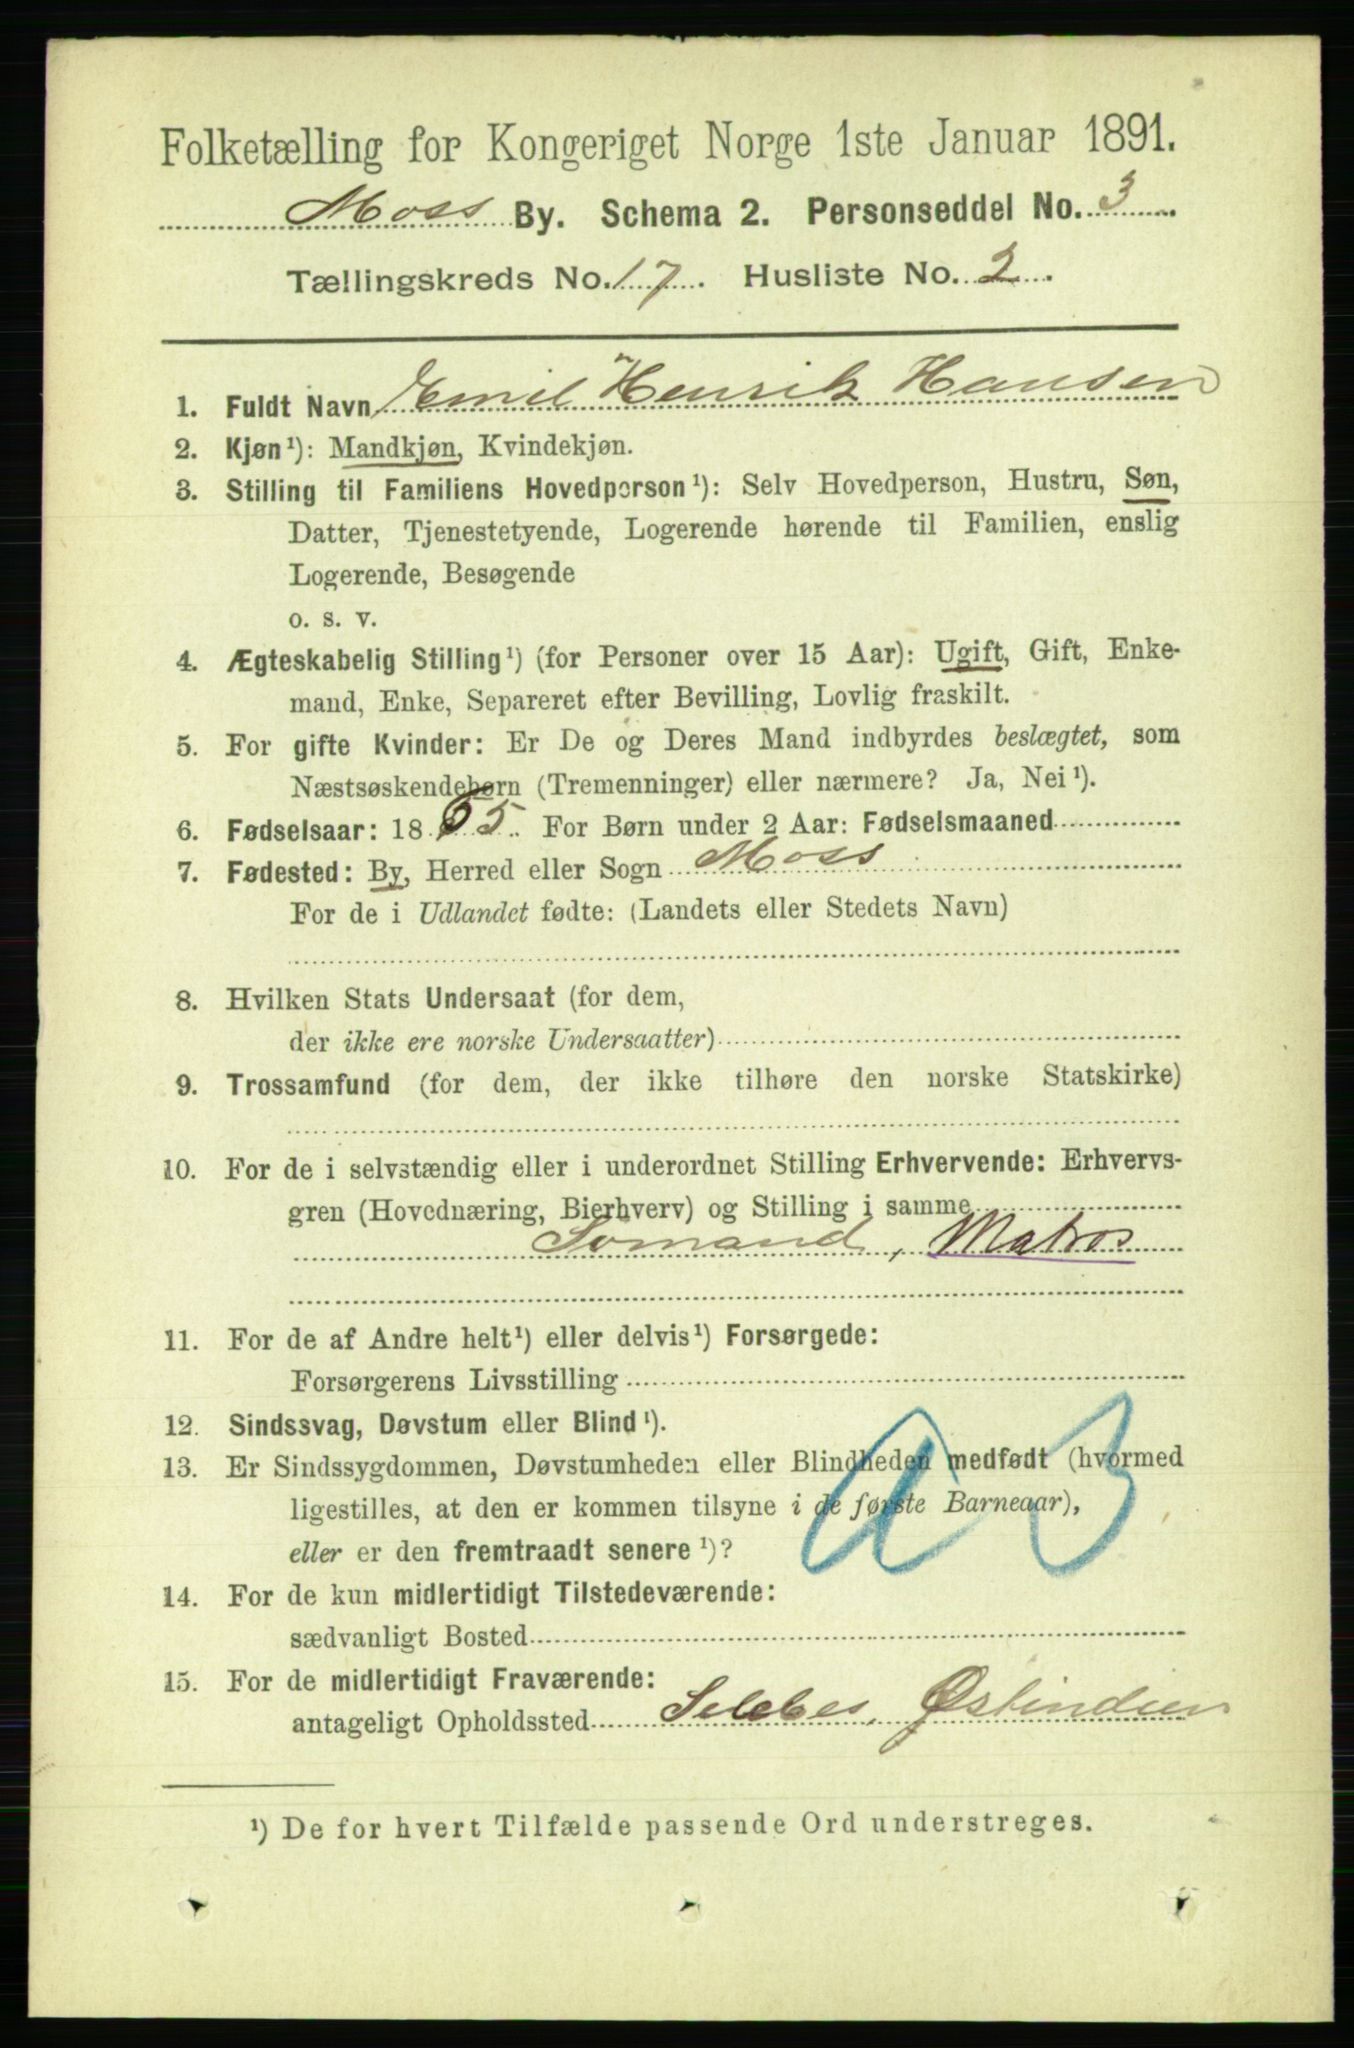 Folketælling for Kongeriget Norge 1ste Januar 1891.
Moss By. Schema 2. Personseddel No. 3
Tællingskreds No. 17. Husliste No. 2.
1. Fuldt Navn Emil Henrik Hansen
2. Kjøn¹): Mandkjøn, Kvindekjøn.
3. Stilling til Familiens Hovedperson¹): Selv Hovedperson, Hustru, Søn,
Datter, Tjenestetyende, Logerende hørende til Familien, enslig
Logerende, Besøgende
o. s. v.
4. Ægteskabelig Stilling¹) (for Personer over 15 Aar): Ugift, Gift, Enke-
mand, Enke, Separeret efter Bevilling, Lovlig fraskilt.
5. For gifte Kvinder: Er De og Deres Mand indbyrdes beslægtet, som
Næstsøskendebørn (Tremenninger) eller nærmere? Ja, Nei¹).
6. Fødselsaar: 1865. For Børn under 2 Aar: Fødselsmaaned
7. Fødested: By, Herred eller Sogn Moss
For de i Udlandet fødte: (Landets eller Stedets Navn)
8. Hvilken Stats Undersaat (for dem,
der ikke ere norske Undersaatter)
9. Trossamfund (for dem, der ikke tilhøre den norske Statskirke)
10. For de i selvstændig eller i underordnet Stilling Erhvervende: Erhvervs-
gren (Hovednæring, Bierhverv) og Stilling i samme
Sømand, Matros
11. For de af Andre helt¹) eller delvis¹) Forsørgede:
Forsørgerens Livsstilling
12. Sindssvag, Døvstum eller Blind¹).
13. Er Sindssygdommen, Døvstumheden eller Blindheden medfødt (hvormed
ligestilles, at den er kommen tilsyne i de første Barneaar),
eller er den fremtraadt senere¹)?
14. For de kun midlertidigt Tilstedeværende:
sædvanligt Bosted
15. For de midlertidigt Fraværende:
antageligt Opholdssted Selebes, Østindien
¹) De for hvert Tilfælde passende Ord understreges.